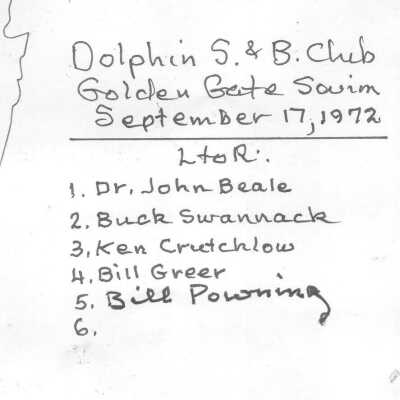 Dolphin S. & B. Club
Golden Gate Swim
September 17, 1972
L to R:.
1. Dr. John Beale
2. Buck Swannack
3. Ken Crutchlow
4. Bill Greer
5. Bill Powning
6.